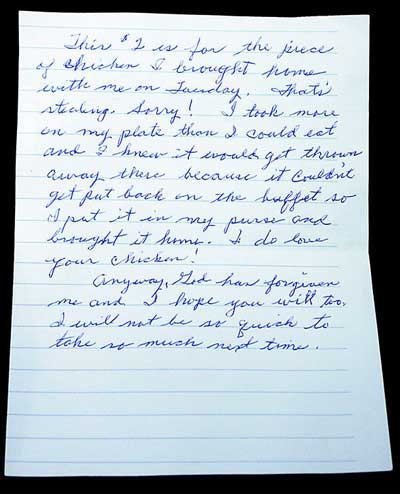 This $2 is for the piece
of chicken I brought home
with me on Tuesday. That's
stealing. Sorry! I took more
on my plate than I could eat
and I knew it would get thrown
away there because it couldn't
get put back on the buffet so
I put it in my purse and
brought it home. I do love
your chicken!
Anyway, God has forgiven
me and I hope you will too.
I will not be so quick to
take so much next time.